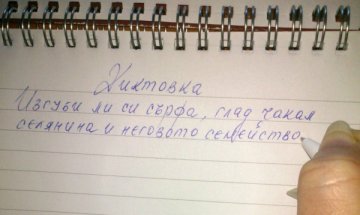 Диктовка
Изгуби ли си сърфа, глад чакал
селянина и неговото семейство.